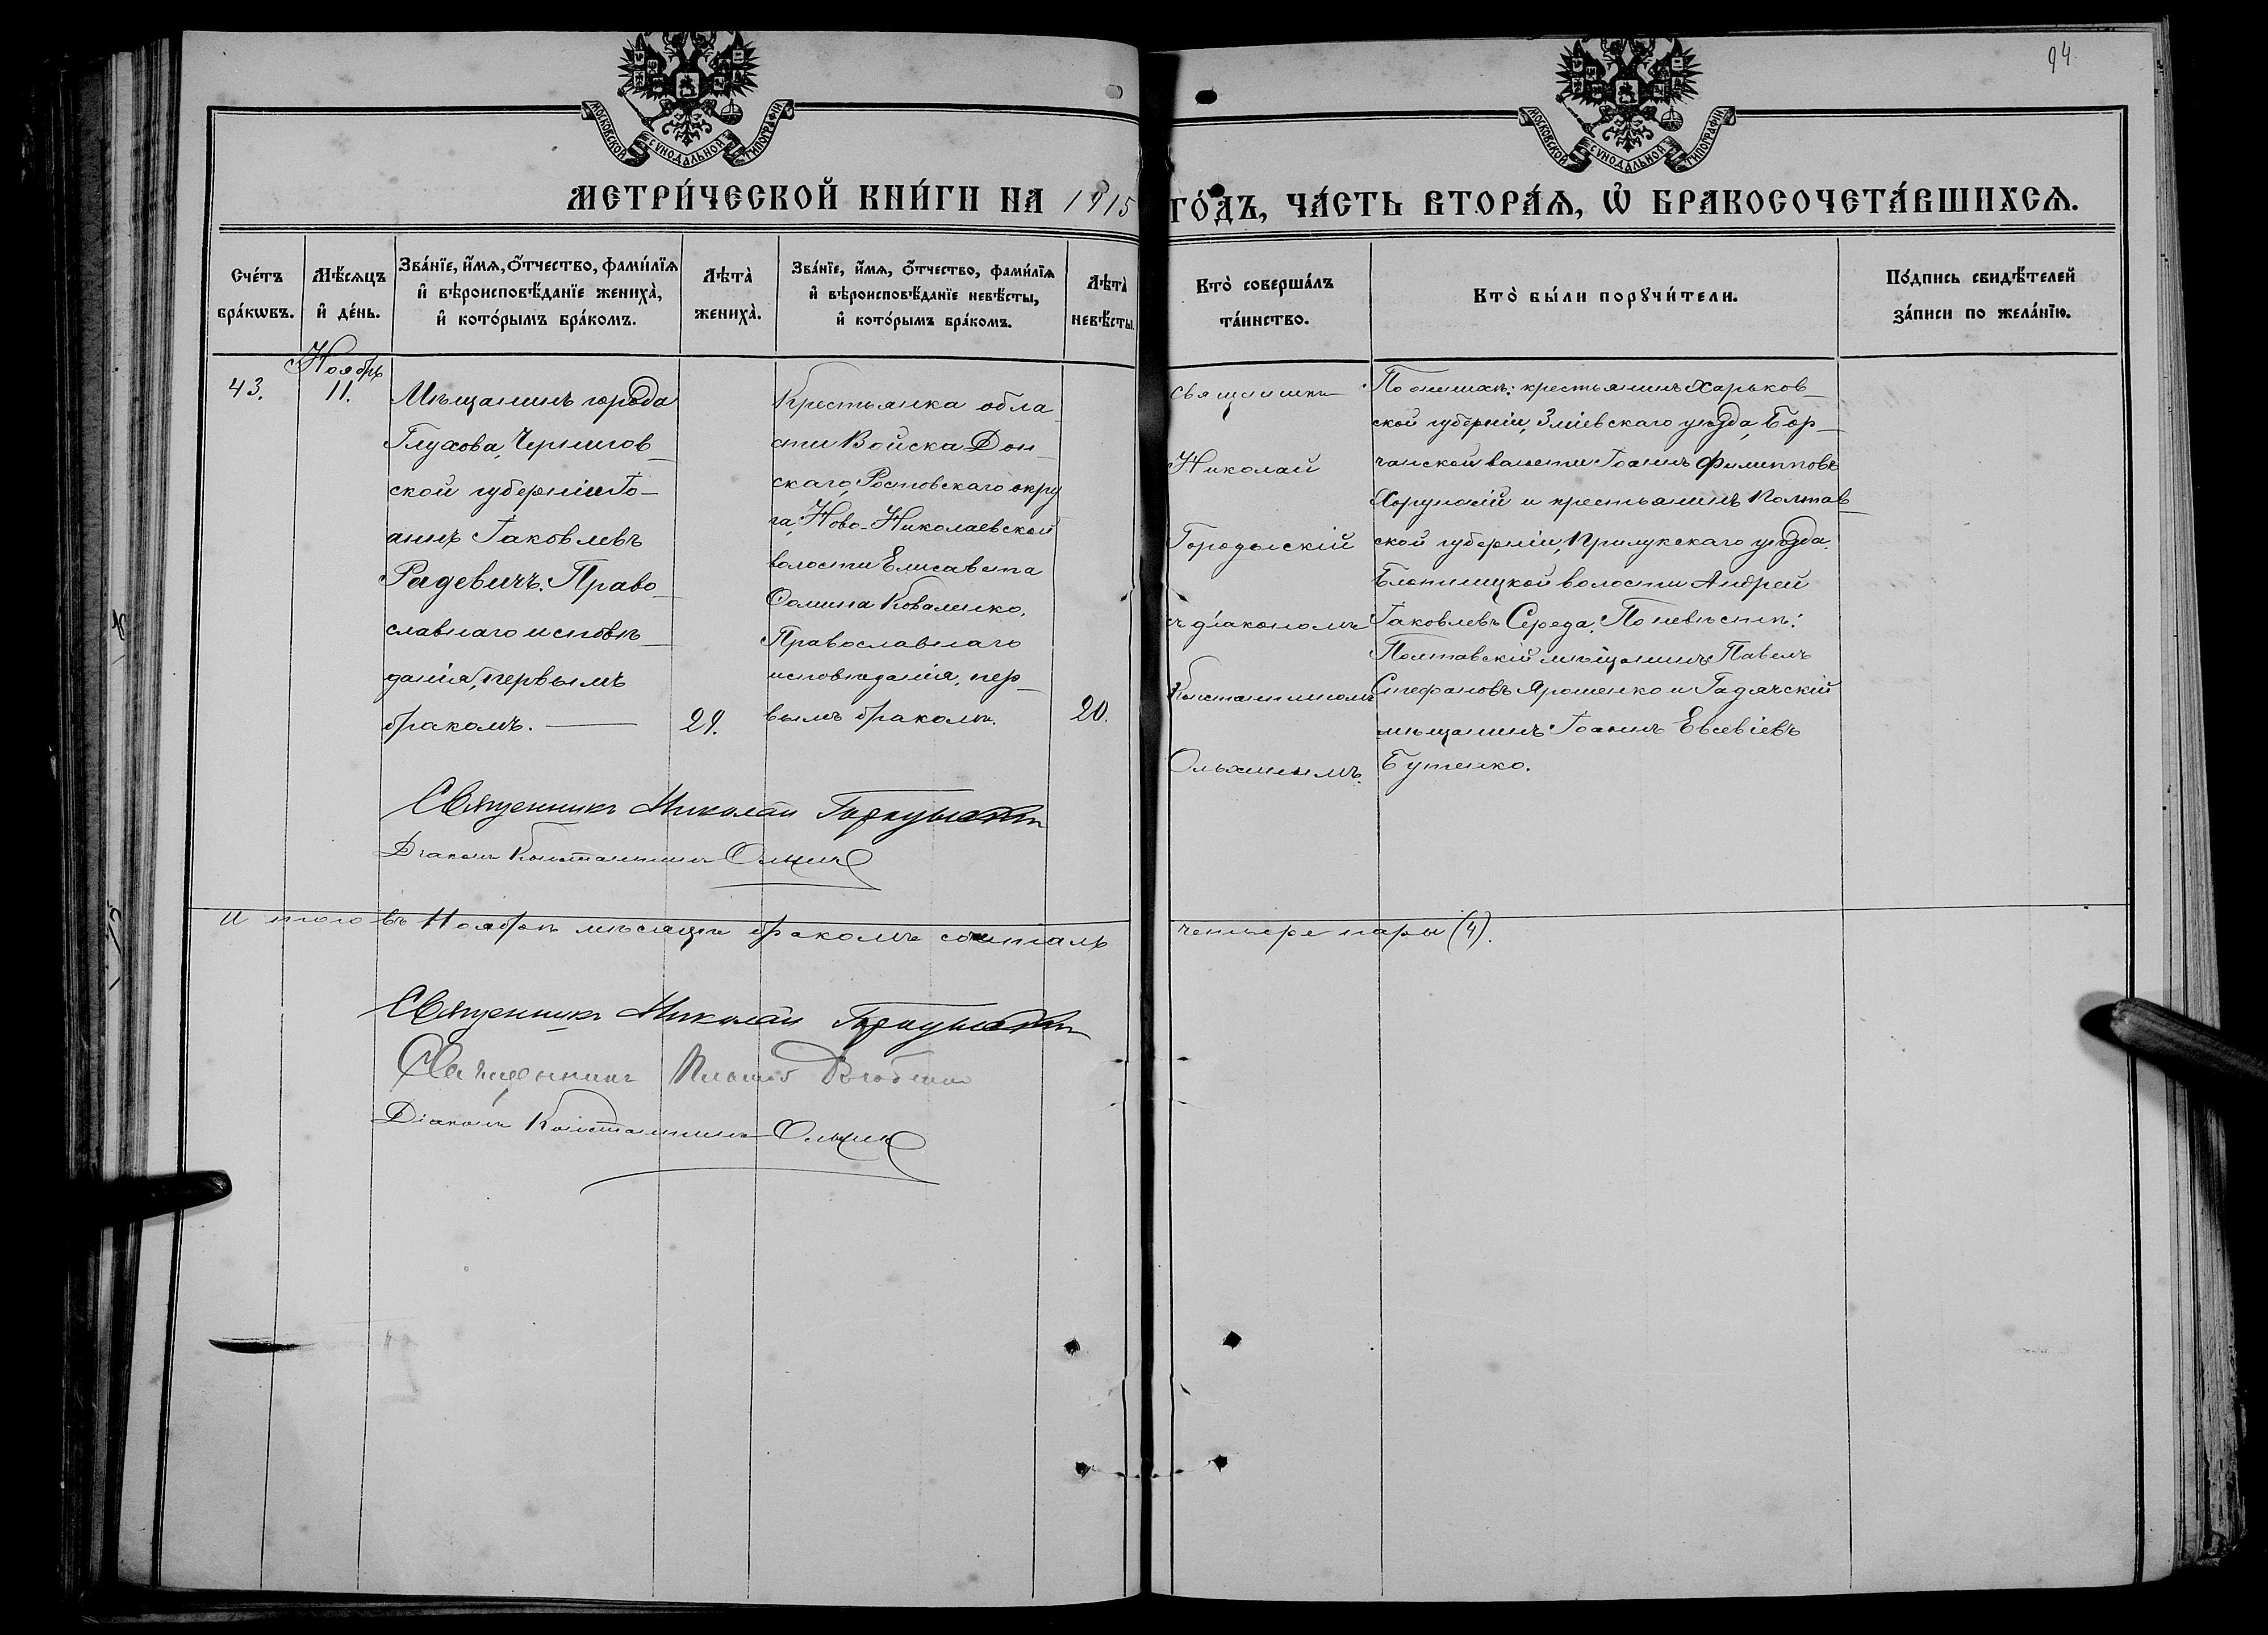 94.
МОСКОВСКОЙ СѴНОДАЛЬНОЙ ТИПОГРАФІИ
МОСКОВСКОЙ СѴНОДАЛЬНОЙ ТИПОГРАФІИ
МЕТРИ́ЧЕСКОЙ КНИ́ГИ НА 1915 ГО́ДЪ, ЧА́СТЬ ВТОРА́Ѧ, Ѡ҆ БРАКОСОЧЕТА́ВШИХСѦ.
Сче́тъ
бра́кѡвъ.
Мѣ́сѧцъ
и҆ де́нь.
Зва́нїе, и҆́мѧ, ѻ҆́тчество, фами́лїѧ
и҆ вѣроисповѣ́данїе жениха̀,
и҆ кото́рымъ бра́комъ.
Лѣта̀
жениха̀.
Зва́нїе, и҆́мѧ, ѻ҆́тчество, фами́лїѧ
и҆ вѣроисповѣ́данїе невѣ́сты,
и҆ кото́рымъ бра́комъ.
Лѣта̀
невѣ́сты.
Кто̀ соверша́лъ
та́инство.
Кто̀ бы́ли порꙋчи́тели.
По́дпись свидѣ́телей
за́писи по жела́нїю.
43.
Ноябрь
11.
Мѣщанинъ города
Глухова, Чернигов-
ской губерніи Іо-
аннъ Іаковлевъ
Радевичъ. Право-
славнаго исповѣ-
данія, первымъ
бракомъ.
29.
Крестьянка обла
сти Войска Дон-
скаго, Ростовскаго окру
га, Ново-Николаевской
волости Елисавета
Ѳомина Коваленко,
Православнаго
исповѣданія, пер-
вымъ бракомъ.
20.
Священникъ
Николай
Городыскій
съ діакономъ
Константиномъ
Ольхинымъ.
По женихѣ: крестьянинъ Харьков-
ской губерніи, Зміевскаго уѣзда, Бор-
чанской волости Іоаннъ Филипповъ
Хорунжій и крестьянинъ Полтав-
ской губерніи, Прилукскаго уѣзда,
волости Андрей
Іаковлевъ Середа. По невѣстѣ:
Полтавскій мѣщанинъ Павелъ
Стефановъ Ярошенко и Гадячскій
мѣщанинъ Іоаннъ Евсевіевъ
Бутенко.
Священникъ Николай Городыскій
Діаконъ Константинъ Ольхинъ
Итого въ Ноябрѣ мѣсяцѣ бракомъ сочетались четыре пары (4).
Священникъ Николай Городыскій
Священникъ
Діаконъ Константинъ Ольхинъ